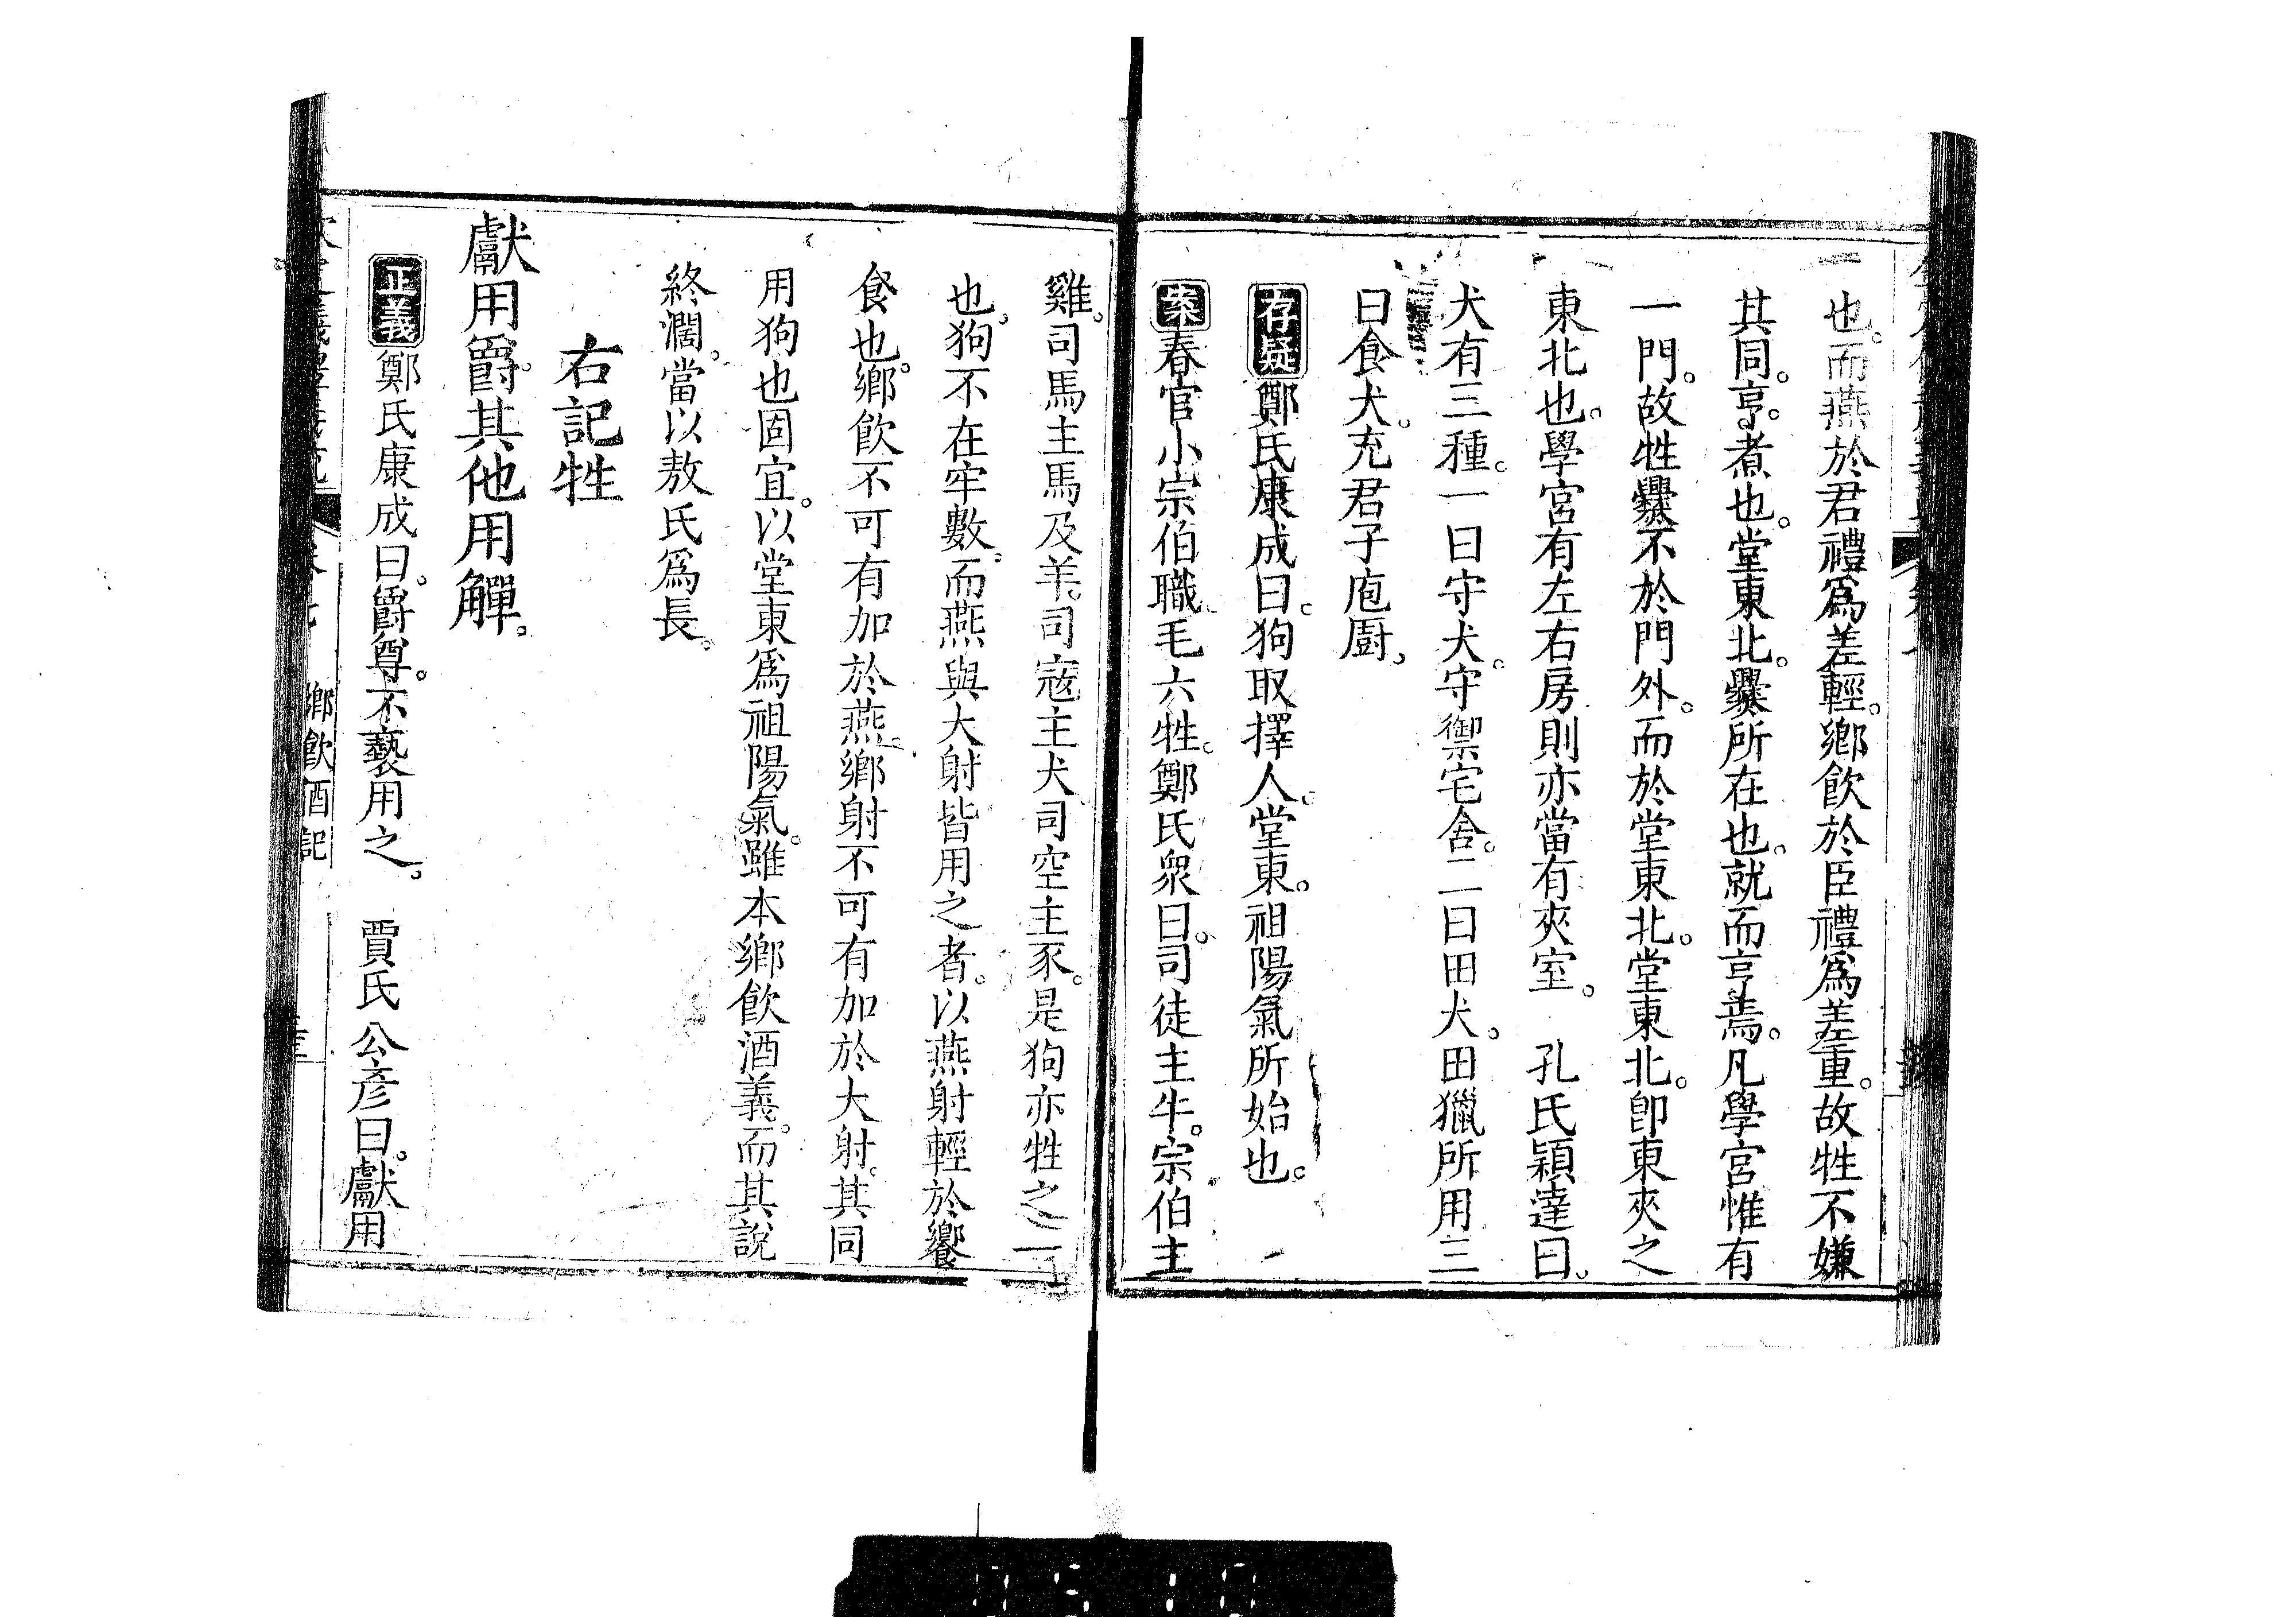 也。而燕於君禮爲差輕。鄉飲於臣禮爲差重。故牲不嫌
其同。亨。煮也。堂東北。爨所在也。就而亨焉。凡學宮惟有
一門。故牲爨不於門外。而於堂東北。堂東北。卽東夾之
東北也。學宮有左右房則亦當有夾室。 孔氏穎達曰。
犬有三種。一曰守犬。守禦宅舍。二曰田犬。田獵所用三
曰食犬。充君子庖厨。
存疑鄭氏康成曰。狗取擇人。堂東。祖陽氣所始也。
案春官小宗伯職。毛六牲。鄭氏衆曰。司徒主牛。宗伯主
雞。司馬主馬及羊。司寇主犬司空主豕。是狗亦牲之一
也。狗不在牢數。而燕與大射皆用之者。以燕射輕於饗
食也。鄉飲不可有加於燕。鄉射不可有加於大射。其同
用狗也固宜。以堂東爲祖陽氣。雖本鄉飲酒義。而其說
終濶。當以敖氏爲長。
右記牲
獻用爵。其他用觶。
正義鄭氏康成曰。爵尊。不褻用之。 賈氏公彥曰。獻用
鄉飲酒記